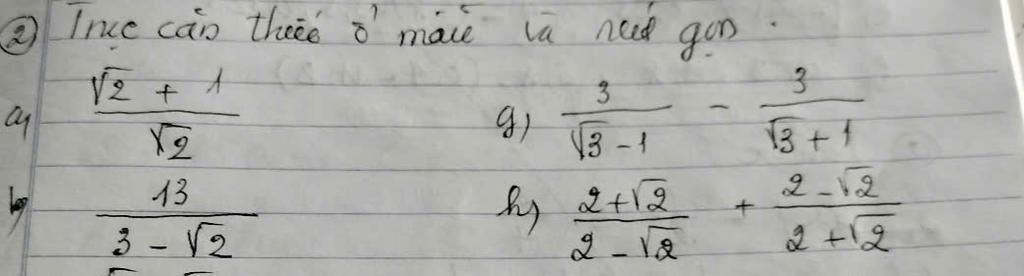 ② Trục căn thức ở mẫu và rút gọn.
a) (√2 + 1)/√2 g) 3/(√3 - 1) - 3/(√3 + 1)
b) 13/(3 - √2) h) (2+√2)/(2 - √2) + (2 - √2)/(2 + √2)